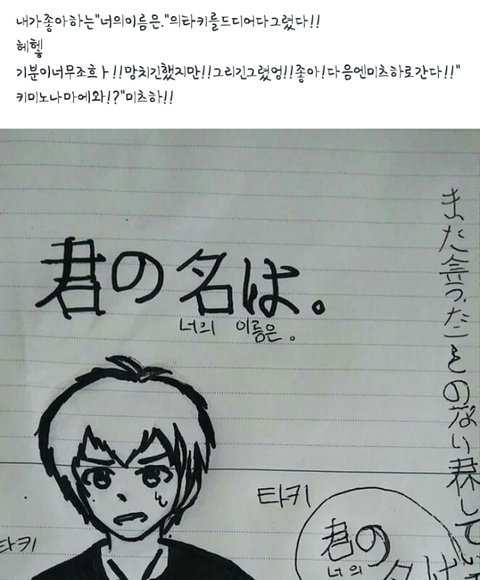 내가좋아하는"너의이름은."의타키를드디어다그렸다!!
헤헿
기분이너무조흐ㅏ!!망치긴했지만!!그리긴그렸엉!!좋아!다음엔미츠하로간다!!"
키미노나마에와!?"미츠하!!
君の名は。
너의 이름은。
まだ会ったことのない君
타키
君の
너의
名は
타키